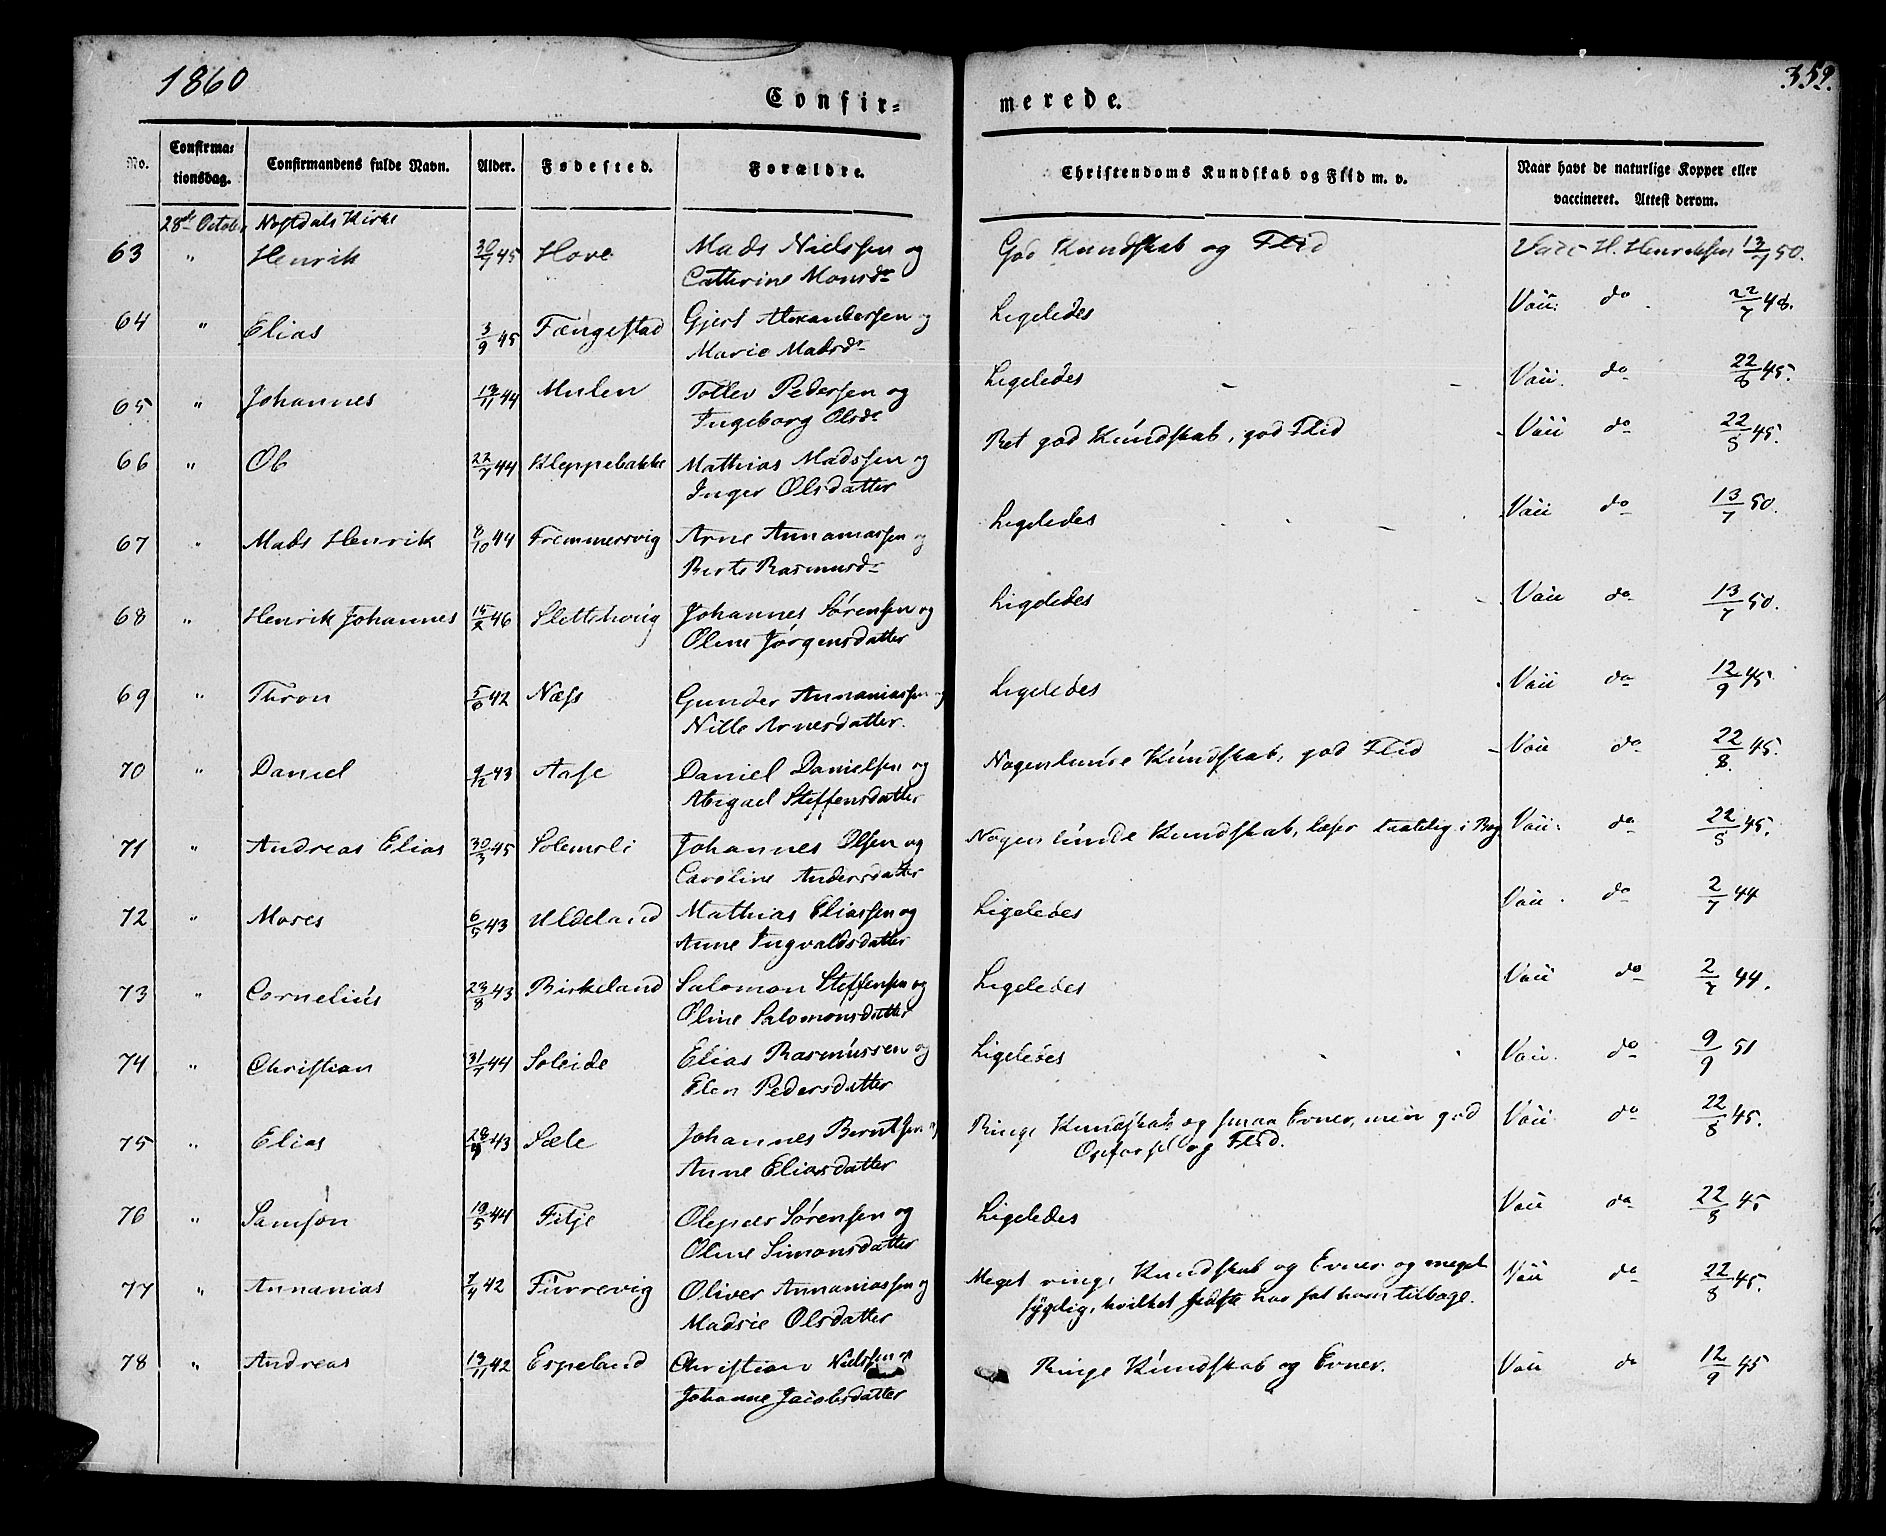 1860
352.
Confir=
merede.
No. Confirma= tionsdag. Confirmandens fulde Navn. Alder. Fødested. Forældre. Christendoms Kundskab og Flid m. v. Naar havt de naturlige Kopper eller vaccineret. Attest derom.
28de October Nostdals Kirke
63 " Henrik 30/7 45 Hove Mads Nielssen og God Kundskab og Flid Vacc H. Henriksen 13/7 50.
Cathrine Monsdr
64 " Elias 3/9 45 Fængestad Gjert Alexandersen og Ligeledes Vacc. do 22/7 48.
Marie Madsdr
65 " Johannes 13/11 44 Mulen Tollev Pedersen og Ligeledes Vacc. do 22/8 45.
Ingeborg Olsdr
66 " Ob 22/7 44 Kleppebakke Mathias Madssen og Ret god Kundskab, god Flid Vacc do 22/8 45.
Inger Olsdatter
67 " Mads Henrik 8/10 44 Fremmersvig Arne Annaniassen og Ligeledes Vacc do 13/7 50.
Berte Rasmusdr
68 " Henrik Johannes 15/2 46 Slettehovig Johannes Sørensen og Ligeledes Vacc do 13/7 50.
Oline Jørgensdatter
69 " Thron 5/6 42 Næss Gunder Annaniassen og Ligeledes Vacc do 12/9 45.
Nille Arnesdatter.
70 " Daniel 9/12 43 Aase Daniel Danielsen og Nogenlunde Kundskab, god Flid Vacc do 22/8 45.
Abigael Steffensdatter
71 " Andreas Elias 30/3 45 Solemsli Johannes Olsen og Nogenlunde Kundskab, læser taalelig i Bog Vacc. do 22/8 45.
Caroline Andersdatter
72 " Moses 6/5 43 Uldeland Mathias Eliassen og Ligeledes Vacc. do 2/7 44
Anne Ingvaldsdatter
73 " Cornelius 23/8 43 Birkeland Salomon Steffensen og Ligeledes Vacc do 2/7 44.
Oline Salomonsdatter
74 " Christian 31/7 44 Soleide Elias Rasmussen og Ligeledes Vacc. do 9/9 51
Elen Pedersdatter
75 " Elias 28/9 43 Sæle Johannes Berntsen og Ringe Kundskab og smaa Evner, men god Vacc. do 22/8 45.
Anne Eliasdatter Opførsel og Flid.
76 " Samson 19/5 44 Fitje Olepeder Sørensen og Ligeledes Vacc do 22/8 45
Oline Simonsdatter
77 " Annanias 7/4 42 Furrevig Oliver Annaniassen og Meget ringe Kundskab og Evner og meget Vacc do 22/8 45.
Madsie Olsdatter sygelig, hvilket sidste har sat ham tilbage.
78 " Andreas 13/11 42 Espeland Christian Nielssen og Ringe Kundskab og Evner. Vacc do 12/9 45
Johanne Jacobsdatter